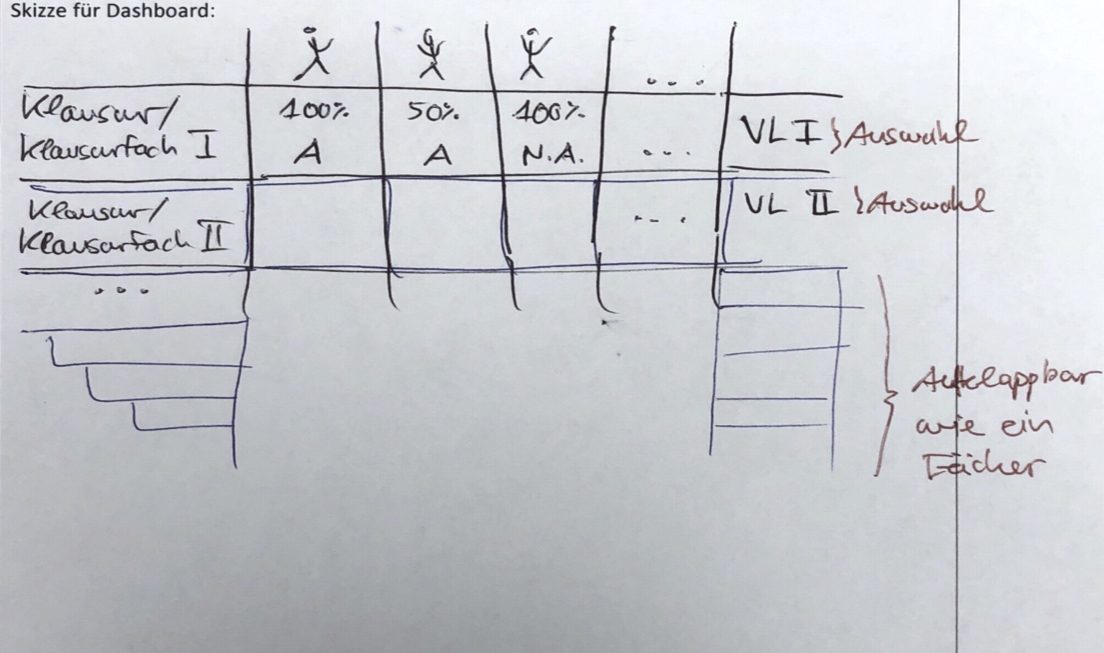 Skizze für Dashboard:
...
Klausur/
Klausurfach I
100% 50% 100%
A A N.A. ...
VL I } Auswahl
Klausur/
Klausurfach II
...
VL II } Auswahl
...
Aufklappbar
wie ein
Fächer